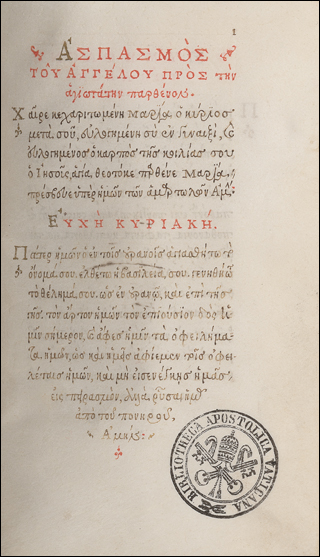 1
ἈΣΠΑΣΜῸΣ
ΤΟΥ͂ ἈΓΓΈΛΟΥ ΠΡῸΣ τὴν
ἁγιωτάτην παρθένον.
Χαῖρε κεχαριτωμένη Μαρία ὁ κύριος
μετὰ σοῦ, εὐλογημένη σὺ ἐν γυναιξὶ, καὶ
εὐλογημένος ὁ καρπὸς τῆς κοιλίας σου
ὁ Ἰησοῦς, ἁγία θεοτόκε Μαρία,
πρέσβευε ὑπὲρ ἡμῶν τῶν ἁμαρτωλῶν Ἀμ.
ΕΥ̓ΧῊ ΚΥΡΙΑΚΉ.
Πάτερ ἡμῶν ὁ ἐν τοῖς οὐρανοῖς ἁγιασθήτω τὸ
ὄνομά σου. ἐλθέτω ἡ βασιλεία σου. γενηθήτω
τὸ θέλημά σου, ὡς ἐν οὐρανῷ, καὶ ἐπὶ τῆς
γῆς. τὸν ἄρτον ἡμῶν τὸν ἐπιούσιον δὸς ἡ-
μῖν σήμερον, καὶ ἄφες ἡμῖν τὰ ὀφειλήμα-
τα ἡμῶν, ὡς καὶ ἡμεῖς ἀφίεμεν τοῖς ὀφει-
λέταις ἡμῶν, καὶ μὴ εἰσενέγκῃς ἡμᾶς
εἰς πειρασμὸν, ἀλλὰ ῥῦσαι ἡμᾶς
ἀπὸ τοῦ πονηροῦ,
Ἀμήν.
BIBLIOTHECA APOSTOLICA VATICANA